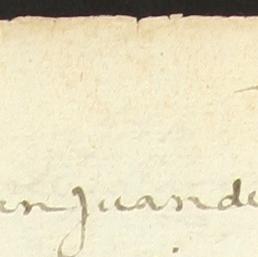 en Juan de